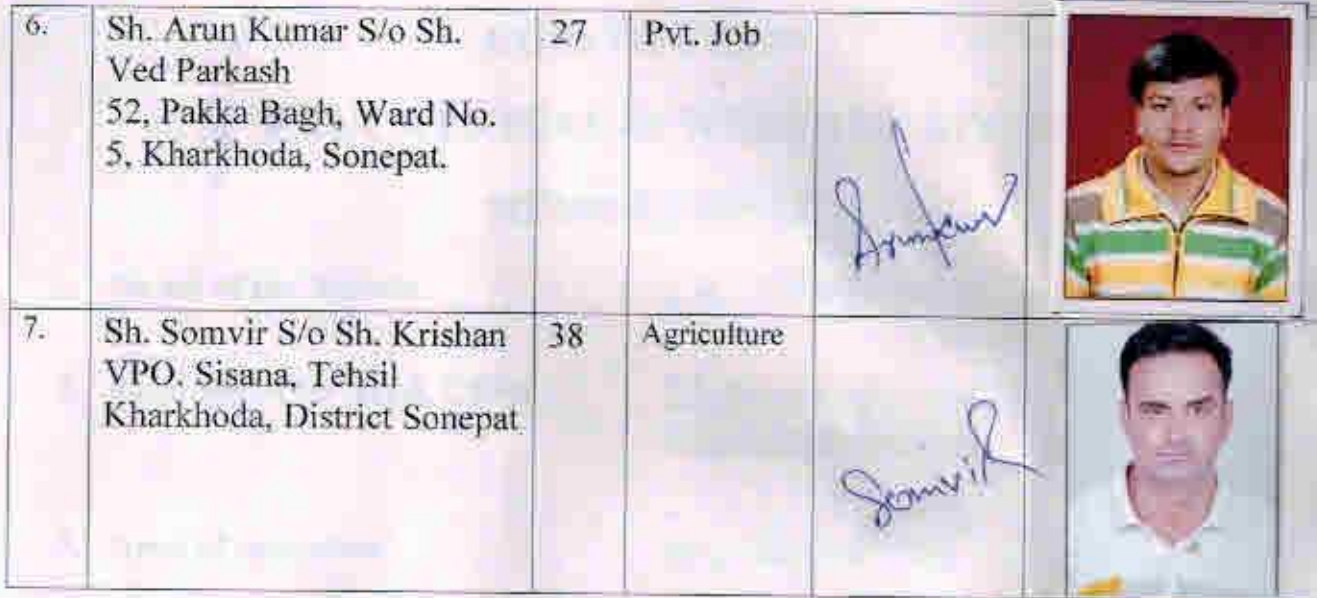 6.
Sh. Arun Kumar S/o Sh.
Ved Parkash
52, Pakka Bagh, Ward No.
5, Kharkhoda, Sonepat.
27
Pvt. Job
7.
Sh. Somvir S/o Sh. Krishan
VPO. Sisana, Tehsil
Kharkhoda, District Sonepat
38
Agriculture
Somvir